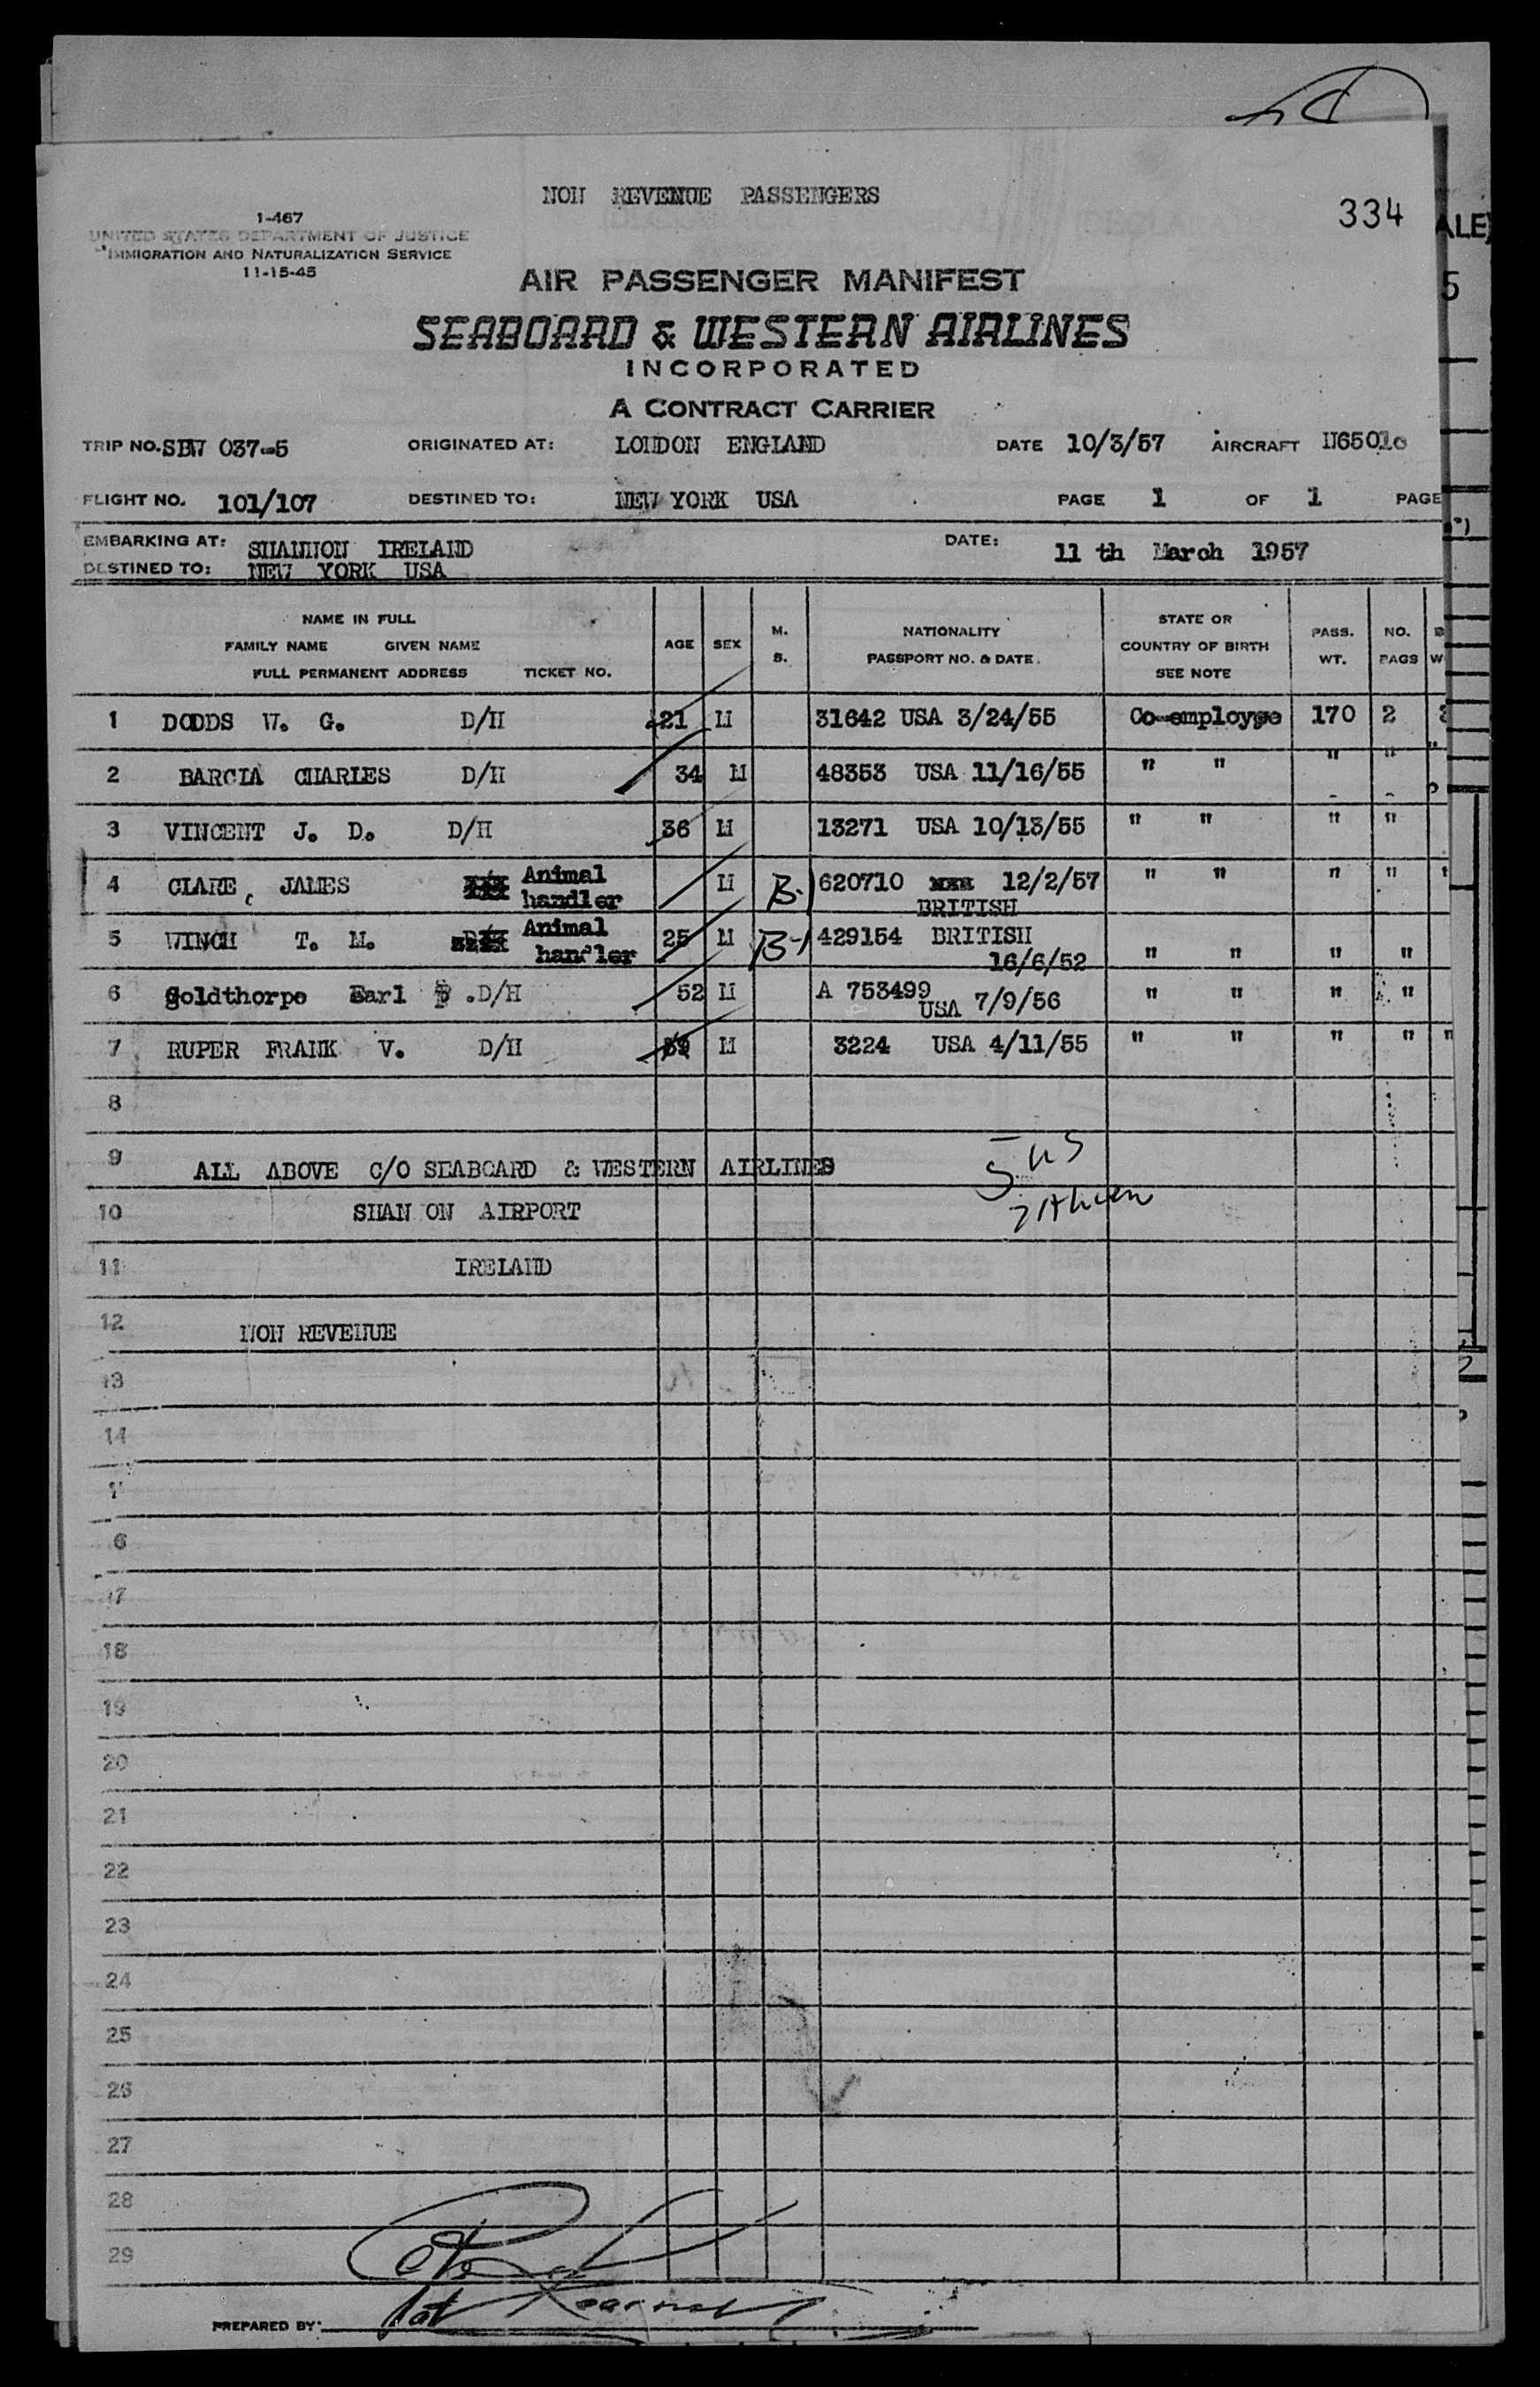 NON REVENUE PASSENGERS
334
ALE)
5
1-467
UNITED STATES DEPARTMENT OF JUSTICE
IMMIGRATION AND NATURALIZATION SERVICE
11-15-45
AIR PASSENGER MANIFEST
SEABOARD & WESTERN AIRLINES
INCORPORATED
A CONTRACT CARRIER
TRIP NO. SBW 037-5 ORIGINATED AT: LONDON ENGLAND DATE 10/3/57 AIRCRAFT N6501c
FLIGHT NO. 101/107 DESTINED TO: NEW YORK USA PAGE 1 OF 1 PAGE
EMBARKING AT: SHANNON IRELAND DATE: 11 th March 1957
DESTINED TO: NEW YORK USA
NAME IN FULL
FAMILY NAME GIVEN NAME
FULL PERMANENT ADDRESS TICKET NO.
AGE SEX M. S.
NATIONALITY
PASSPORT NO. & DATE.
STATE OR
COUNTRY OF BIRTH
SEE NOTE
PASS. WT.
NO. BAGS
1 DODDS W. G. D/H 21 M 31642 USA 3/24/55 Co-employye 170 2
2 BARCIA CHARLES D/H 34 M 48353 USA 11/16/55 " " " "
3 VINCENT J. D. D/H 36 M 13271 USA 10/13/55 " " " "
4 CLARE, JAMES Animal handler M B-1 620710 12/2/57 BRITISH " " " " "
5 WINCH T. M. Animal handler 25 M B-1 429154 BRITISH 16/6/52 " " " "
6 Goldthorpe Earl .D/H 52 M A 753499 USA 7/9/56 " " " "
7 RUPER FRANK V. D/H 39 M 3224 USA 4/11/55 " " " " "
8
9 ALL ABOVE C/O SEABOARD & WESTERN AIRLINES
10 SHAN ON AIRPORT
11 IRELAND
12 NON REVENUE
13
14
6
17
18
19
20
21
22
23
24
25
26
27
28
29
PREPARED BY: Pat